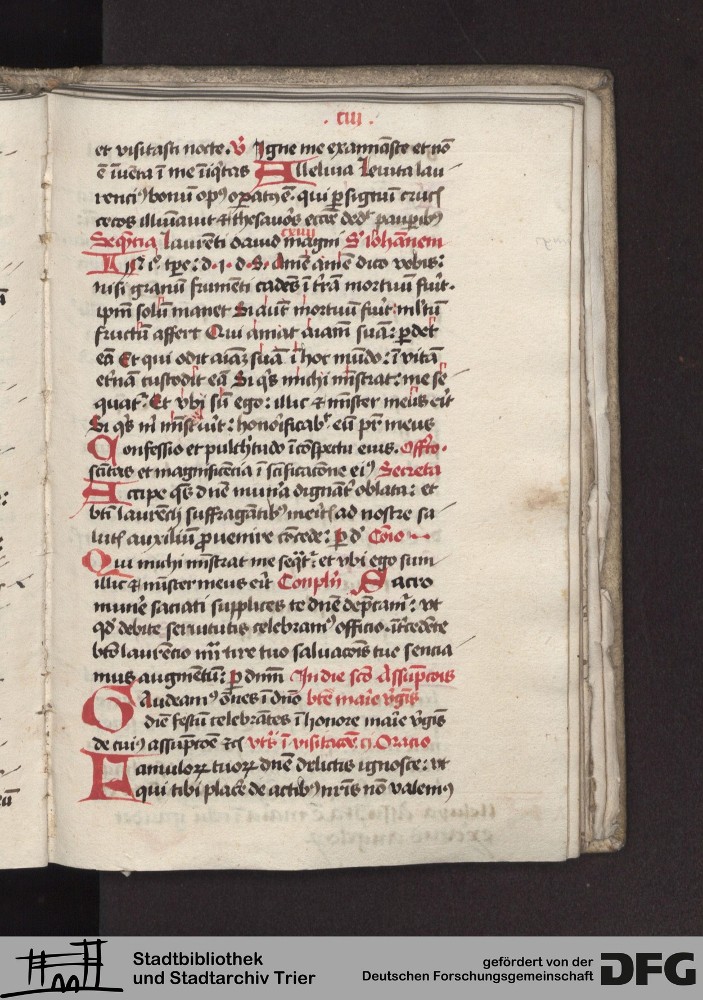 . ciij .
et visitasti nocte. v̄ Igne me examinasti et nō
ē inuēta ī me iīq̄tas Alleluia Leuita lau
renciꝰ bonū opꝰ opatꝰ ē. qui p signū crucꝭ
cecos illuīauit & thesauros eccīe dedꝭ paupibꝰ
cxiiij
Seqntia Laurēti dauid magni S' Iohānem
ī c̄ tp̄e: d. i. d. s. Amē amē dico vobis:
nisi granū frumēti cadēs ī t̄rā mortuū fuīt.
ipm̄ solū manet Si aūt mortuū fuīt: ml̄tū
fructū affert Qui amat aīam suā: pdet
eā Et qui odit aīaꝫ suā ī hoc mūdo: ī vitā
et̄nā custodit eā Si qꝭ michi mīstrat: me se
quatꝭ Et vbi sū ego: illic & mīster meus eīt
Si qꝭ m̄ mīstrūit: honorificabꝭ eū pr̄ meus
Confessio et pulchtudo ī cōspectu eius. Offto.
scītas et magnificēcia ī scīficacōne eiꝰ Secreta
Accipe qs dn̄e mun̄a dignāt oblata: et
btī laurēcij suffragātibꝰ meitꝭ ad nostre sa
lutꝭ auxiliū puenire cōcede: p d' Cōio
Qui michi mīstrat me seqtꝭ: et vbi ego sum
illic & mīster meus eīt Conpln̄ Sacro
mun̄e saciati supplices te dn̄e depcamꝭ: vt
qd debite seruitutis celebramꝰ officio. īt̄cedēte
btō laurēcio mr̄e tuo saluacoīs tue sencia
mus augmētū: p dnm̄ In die scē Assūpcoīs
Gaudeamꝰ oēs ī dn̄o bt̄e maīe v̄gīs
diē festū celebrātes ī honore maīe v̄gīs
de cuiꝰ assūpcōe &cꝭ vts̄ ī visitacōe. Oracio
Famuloꝝ tuoꝝ dn̄e delictis ignosce: vt
qui tibi placēe de actibꝰ nr̄is nō valemꝰ
Stadtbibliothek
und Stadtarchiv Trier
gefördert von der
Deutschen Forschungsgemeinschaft
DFG